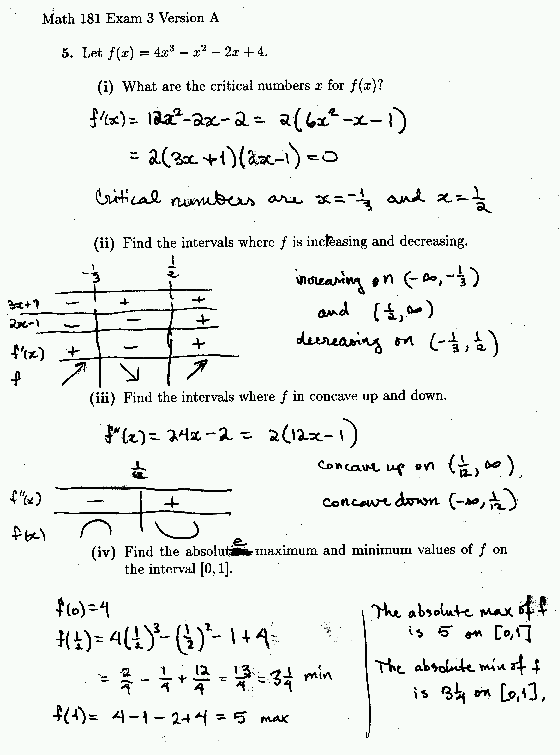 Math 181 Exam 3 Version A
5. Let f(x) = 4x³ − x² − 2x + 4.
(i) What are the critical numbers x for f(x)?
f'(x) = 12x² − 2x − 2 = 2(6x² − x − 1)
= 2(3x + 1)(2x − 1) = 0
Critical numbers are x = −1/3 and x = 1/2
(ii) Find the intervals where f is increasing and decreasing.
−1/3 1/2
3x+1 − + +
2x−1 − − +
f'(x) + − +
f ↗ ↘ ↗
increasing on (−∞, −1/3)
and (1/2, ∞)
decreasing on (−1/3, 1/2)
(iii) Find the intervals where f in concave up and down.
f''(x) = 24x − 2 = 2(12x − 1)
1/12
f''(x) − +
f(x)
concave up on (1/12, ∞)
concave down (−∞, 1/12)
(iv) Find the absolute maximum and minimum values of f on
the interval [0, 1].
f(0) = 4
f(1/2) = 4(1/2)³ − (1/2)² − 1 + 4 =
= 2/4 − 1/4 + 12/4 = 13/4 = 3 1/4 min
f(1) = 4 − 1 − 2 + 4 = 5 max
The absolute max of f
is 5 on [0,1]
The absolute min of f
is 3 1/4 on [0,1],